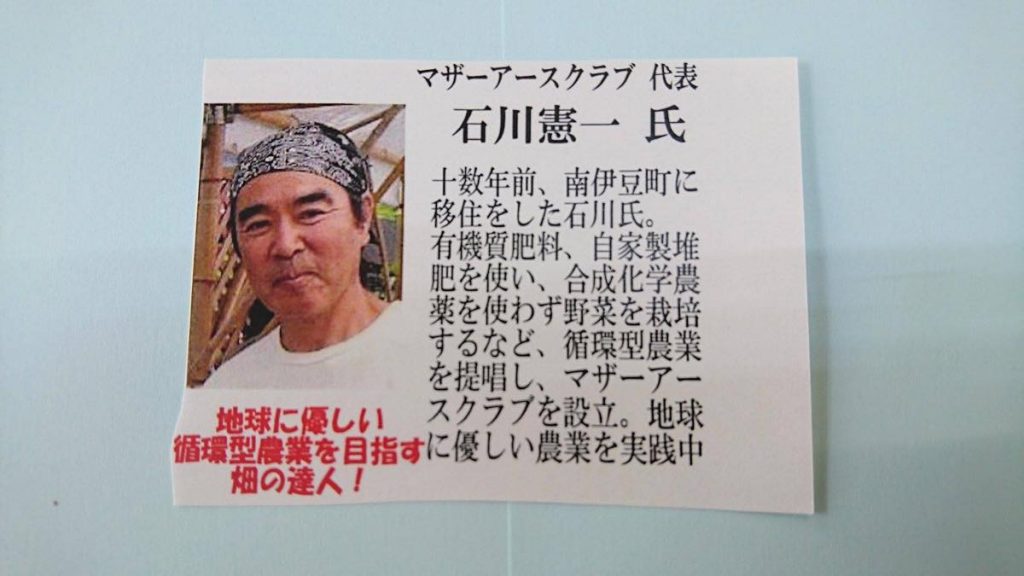 マザーアースクラブ 代表
石川憲一 氏
十数年前、南伊豆町に
移住をした石川氏。
有機質肥料、自家製堆
肥を使い、合成化学農
薬を使わず野菜を栽培
するなど、循環型農業
を提唱し、マザーアー
スクラブを設立。地球
に優しい農業を実践中
地球に優しい
循環型農業を目指す
畑の達人！